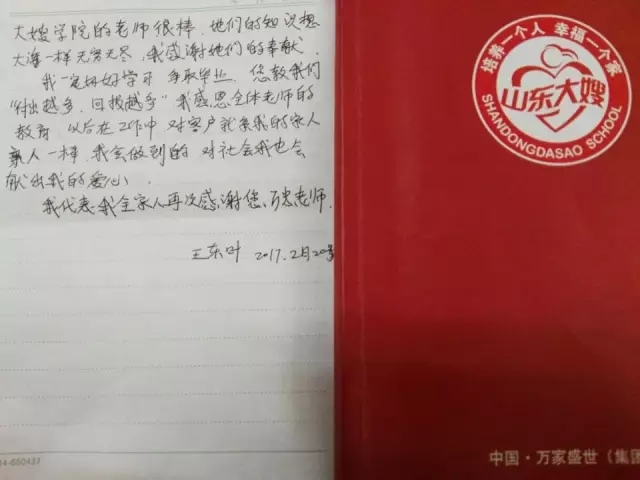 大嫂学院的老师很棒，她们的知识想
大海一样无穷无尽，我感谢她们的奉献．
我一定好好学习 争取毕业．您教我们
“付出越多．回报越多”我感恩全体老师的
教育 以后在工作中 对客户就象我的家人
亲人一样．我会做到的 对社会我也会
献出我的爱心、
我代表我全家人再次感谢您、万忠老师．
王东叶 2017.2月20号
4-650437
培养一个人 幸福一个家
山东大嫂
SHANDONGDASAO SCHOOL
中国·万家盛世（集团